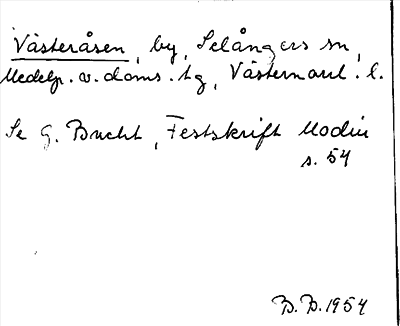 Västeråsen, by, Selångers sn,
Medelp. v. doms. tg, Västernorrl. l.
Se G. Bucht, Festskrift Modin
s. 54
B.B. 1954